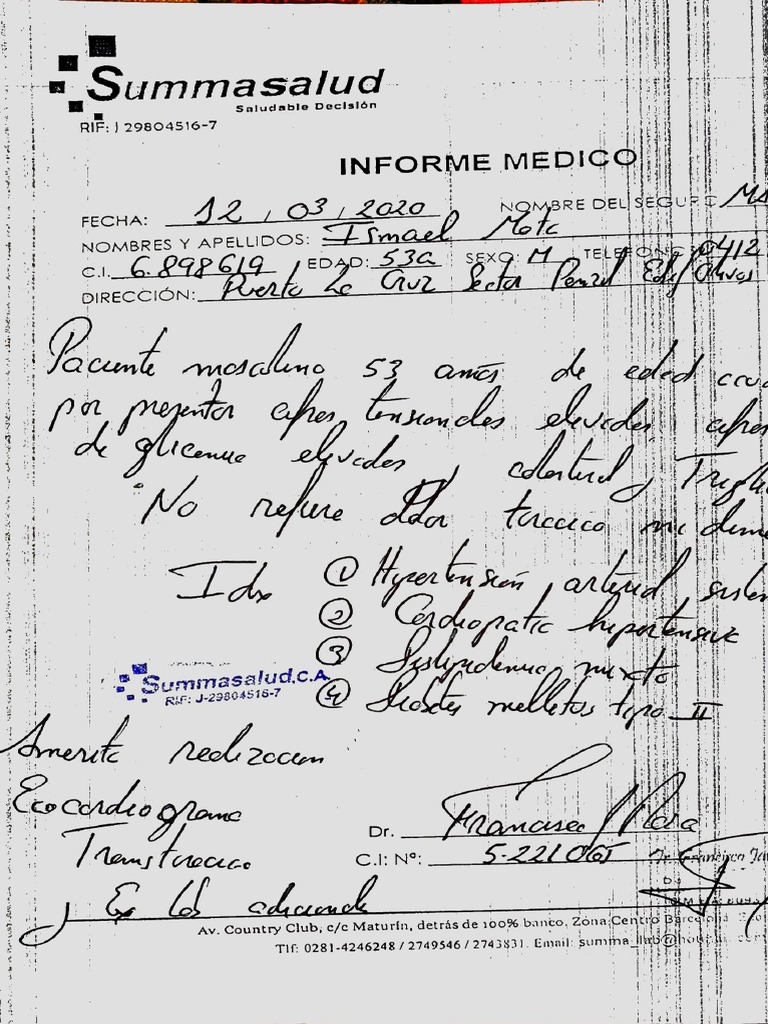 Summasalud
Saludable Decisión
RIF: J 29804516-7
INFORME MEDICO
FECHA: 12 / 03 / 2020 NOMBRE DEL SEGURO
NOMBRES Y APELLIDOS: Ismael Mota
C.I. 6.898619 EDAD: 53a SEXO M TELEFONO: 0412
DIRECCIÓN: Puerto La Cruz Sector Edf Olivos
Paciente masculino 53 años de edad
por presentar cifras tensionales elevadas, cifras
de glicemia elevadas, colesterol y
No refiere dolor toracico ni
Idx ① Hypertensión arterial
② Cardiopatia hipertensiva
③ Dislipidemia mixta
④ Diabetes mellitus tipo II
Summasalud,C.A.
RIF: J-29804516-7
Amerita realizacion
Ecocardiograma
Transtoracico
y Ex Lab adicionales
Dr. Francisco
C.I: Nº: 5-221065
Av. Country Club, c/c Maturín, detrás de 100% banco, Zona Centro Barcelona
Tlf: 0281-4246248 / 2749546 / 2743831. Email: